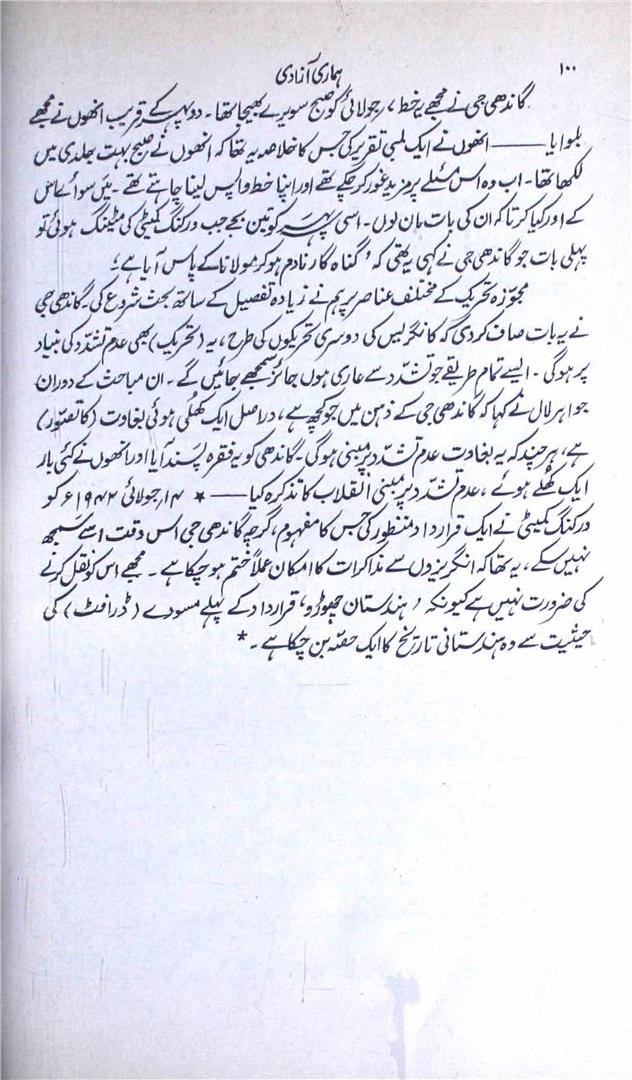 ۱۰۰
ہماری آزادی
گاندھی جی نے مجھے یہ خط ۷ جولائی کو صبح سویرے بھیجا تھا۔ دوپہر کے قریب انھوں نے مجھے
بلوایا —— انھوں نے ایک لمبی تقریر کی جس کا خلاصہ یہ تھا کہ انھوں نے صبح بہت جلدی میں
لکھا تھا۔ اب وہ اس مسئلے پر مزید غور کر چکے تھے اور اپنا خط واپس لینا چاہتے تھے۔ میں سوائے اس
کے اور کیا کرتا کہ ان کی بات مان لوں۔ اسی پہر کو تین بجے جب ورکنگ کمیٹی کی میٹنگ ہوئی تو
پہلی بات جو گاندھی جی نے کہی یہ تھی کہ ‘گناہ گار نادم ہو کر مولانا کے پاس آیا ہے’
مجوّزہ تحریک کے مختلف عناصر پر ہم نے زیادہ تفصیل کے ساتھ بحث شروع کی۔ گاندھی جی
نے یہ بات صاف کر دی کہ کانگریس کی دوسری تحریکوں کی طرح، یہ (تحریک) بھی عدم تشدّد کی بنیاد
پر ہوگی۔ ایسے تمام طریقے جو تشدّد سے عاری ہوں جائز سمجھے جائیں گے۔ ان مباحث کے دوران
جواہر لال نے کہا کہ گاندھی جی کے ذہن میں جو کچھ ہے، دراصل ایک کھلی ہوئی بغاوت (کا تصوّر)
ہے، ہر چند کہ یہ بغاوت عدم تشدّد پر مبنی ہوگی۔ گاندھی کو یہ فقرہ پسند آیا اور انھوں نے کئی بار
ایک کھلے ہوئے، عدم تشدّد پر مبنی انقلاب کا تذکرہ کیا —— * ۱۴ جولائی ۱۹۴۲ء کو
ورکنگ کمیٹی نے ایک قرارداد منظور کی جس کا مفہوم، گرچہ گاندھی جی اس وقت اسے سمجھ
نہیں سکے، یہ تھا کہ انگریزوں سے مذاکرات کا امکان عملاً ختم ہو چکا ہے۔ مجھے اس کو نقل کرنے
کی ضرورت نہیں ہے کیونکہ ‘ہندستان چھوڑو’ قرارداد کے پہلے مسودے (ڈرافٹ) کی
حیثیت سے وہ ہندستانی تاریخ کا ایک حصّہ بن چکا ہے۔*